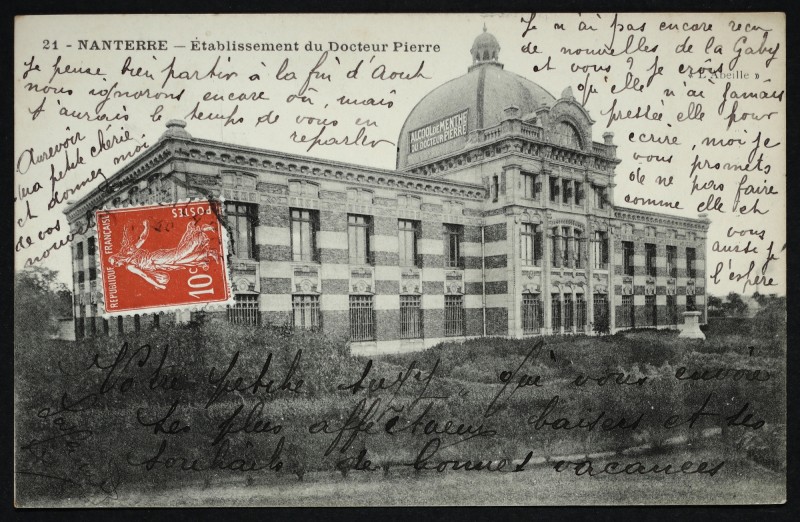 21 - NANTERRE — Établissement du Docteur Pierre
« L'Abeille »
Je pense bien partir à la fin d'Aout
nous ignorons encore où, mais
j'aurais le temps de vous en
reparler
Aurevoir
ma petite chérie
et donnez moi
de vos
nouvelles
Je n'ai pas encore reçu
de nouvelles de la Gaby
et vous? je crois
qu'elle n'ai jamais
pressée elle pour
écrire, moi je
vous promets
de ne pas faire
comme elle et
vous
aussi j'
l'espère
ALCOOL DE MENTHE
DU DOCTEUR PIERRE
POSTES
RÉPUBLIQUE FRANÇAISE
10 c
Votre petite qui vous envoie
ses plus affectueux baisers et ses
souhaits de bonnes vacances